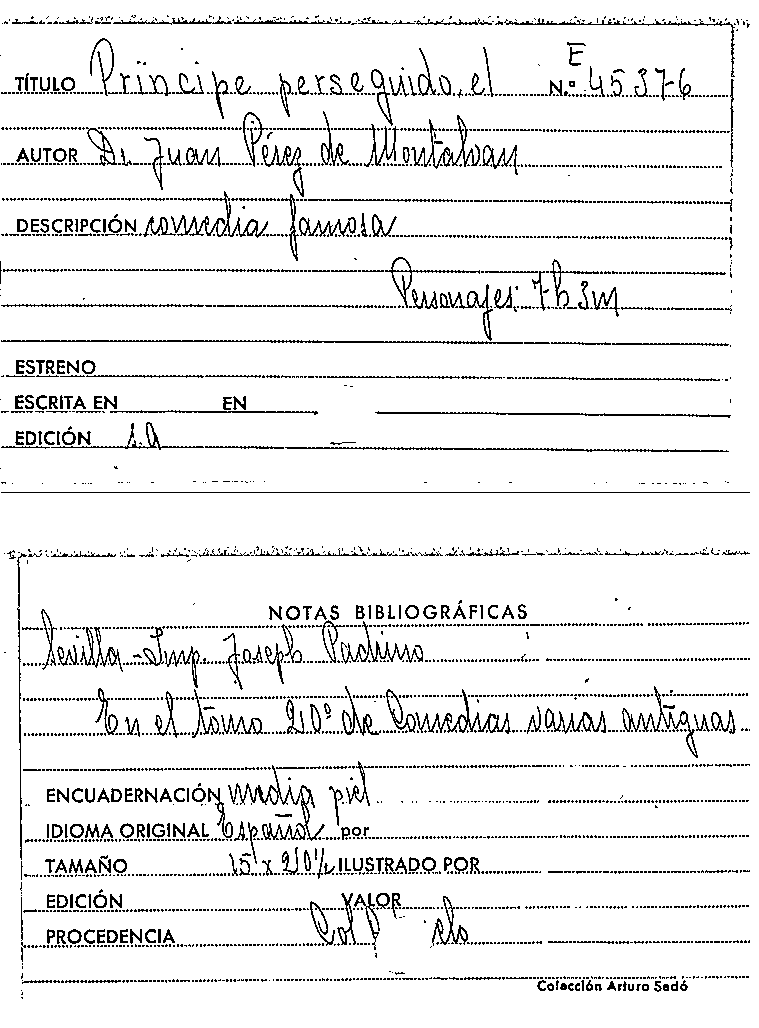 E
TÍTULO Príncipe perseguido, el N.º 45376
AUTOR Dr Juan Pérez de Montalvan
DESCRIPCIÓN comedia famosa
Personajes: 7h 3m
ESTRENO
ESCRITA EN EN
EDICIÓN s.a
NOTAS BIBLIOGRÁFICAS
Sevilla - Imp. Joseph Padrino
En el tomo 20º de Comedias varias antiguas
ENCUADERNACIÓN media piel
IDIOMA ORIGINAL Español por
TAMAÑO 15 x 20½ ILUSTRADO POR
EDICIÓN VALOR
PROCEDENCIA Col
Colección Arturo Sedó